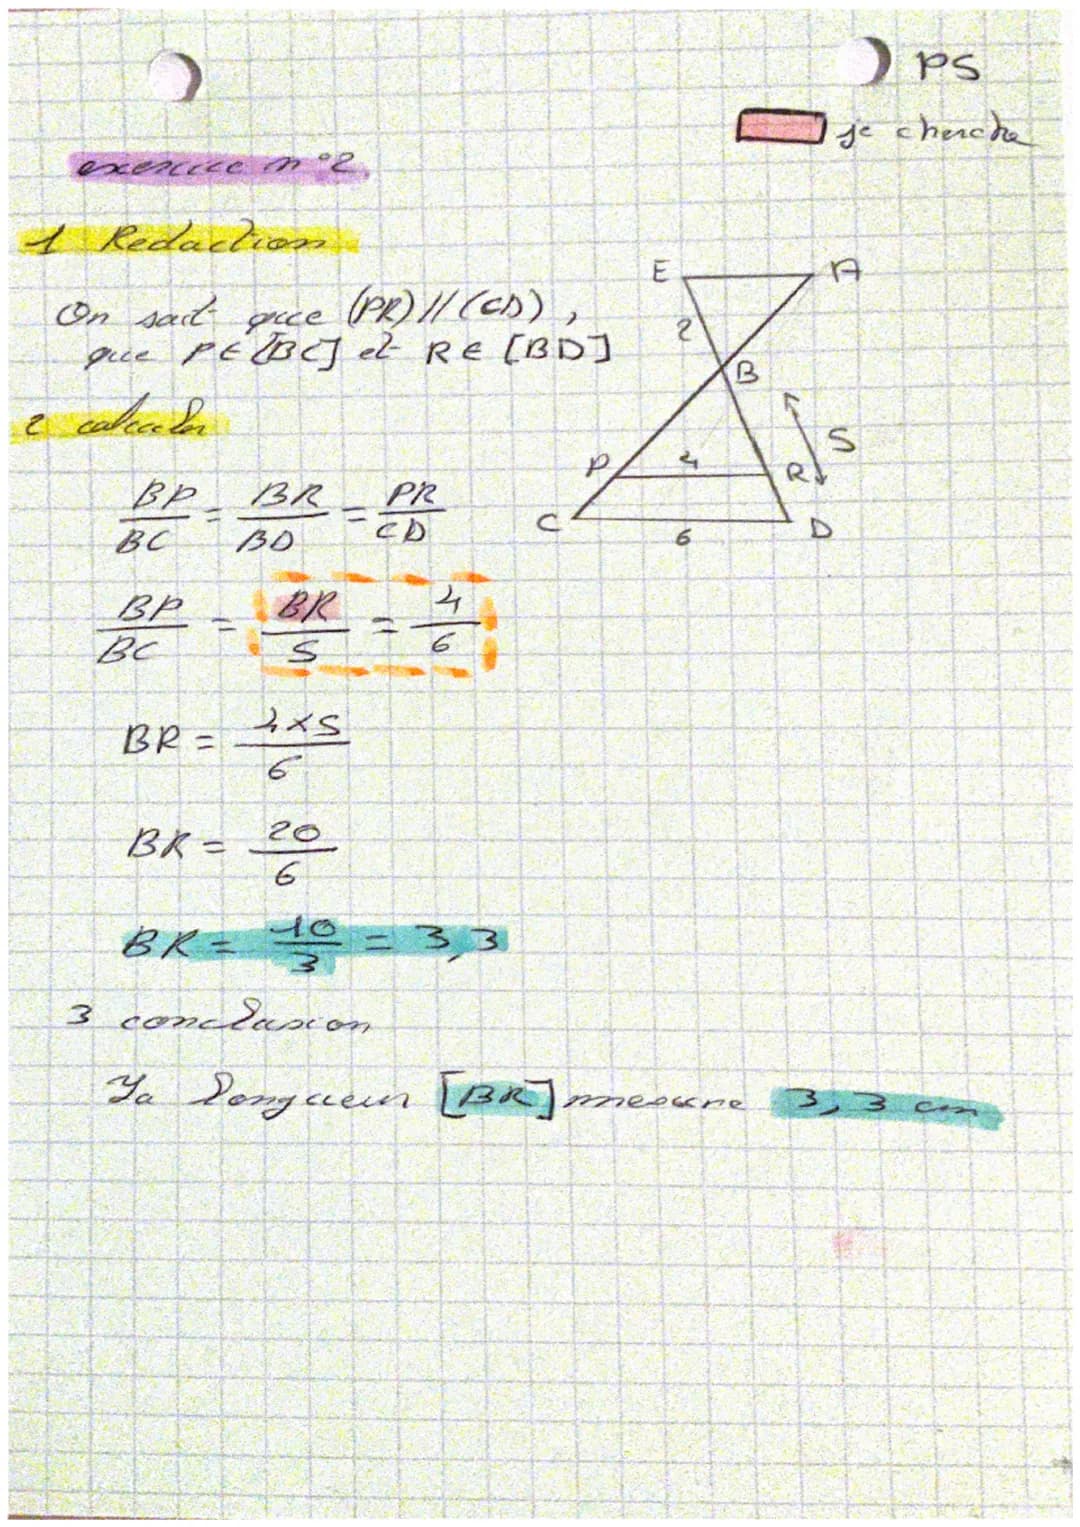 PS
je cherche
exercice n°2
1 Redaction
On sait que (PR)//(CD),
que P∈[BC] et R∈[BD]
E A
2
B
5
P 4 R
C D
6
2 calculer
BP/BC = BR/BD = PR/CD
BP/BC = BR/5 = 4/6
BR = 4×5/6
BR = 20/6
BR = 10/3 = 3,3
3 conclusion
La longueur [BR] mesure 3,3 cm